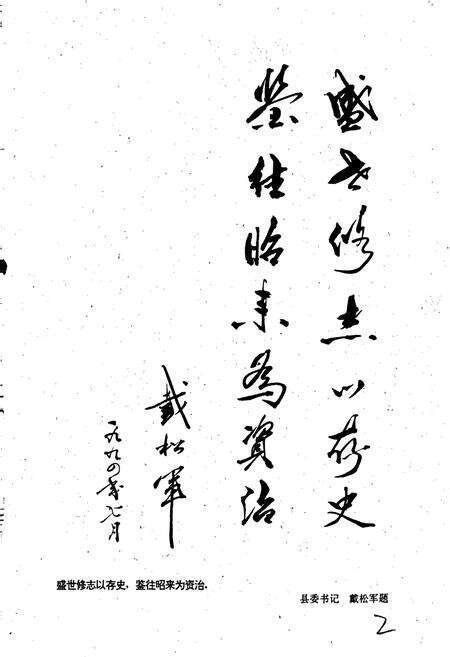 盛世修志以存史
鉴往昭来为資治
戴松军
一九九四年七月
盛世修志以存史，鉴往昭来为资治．
县委书记　戴松军题
2